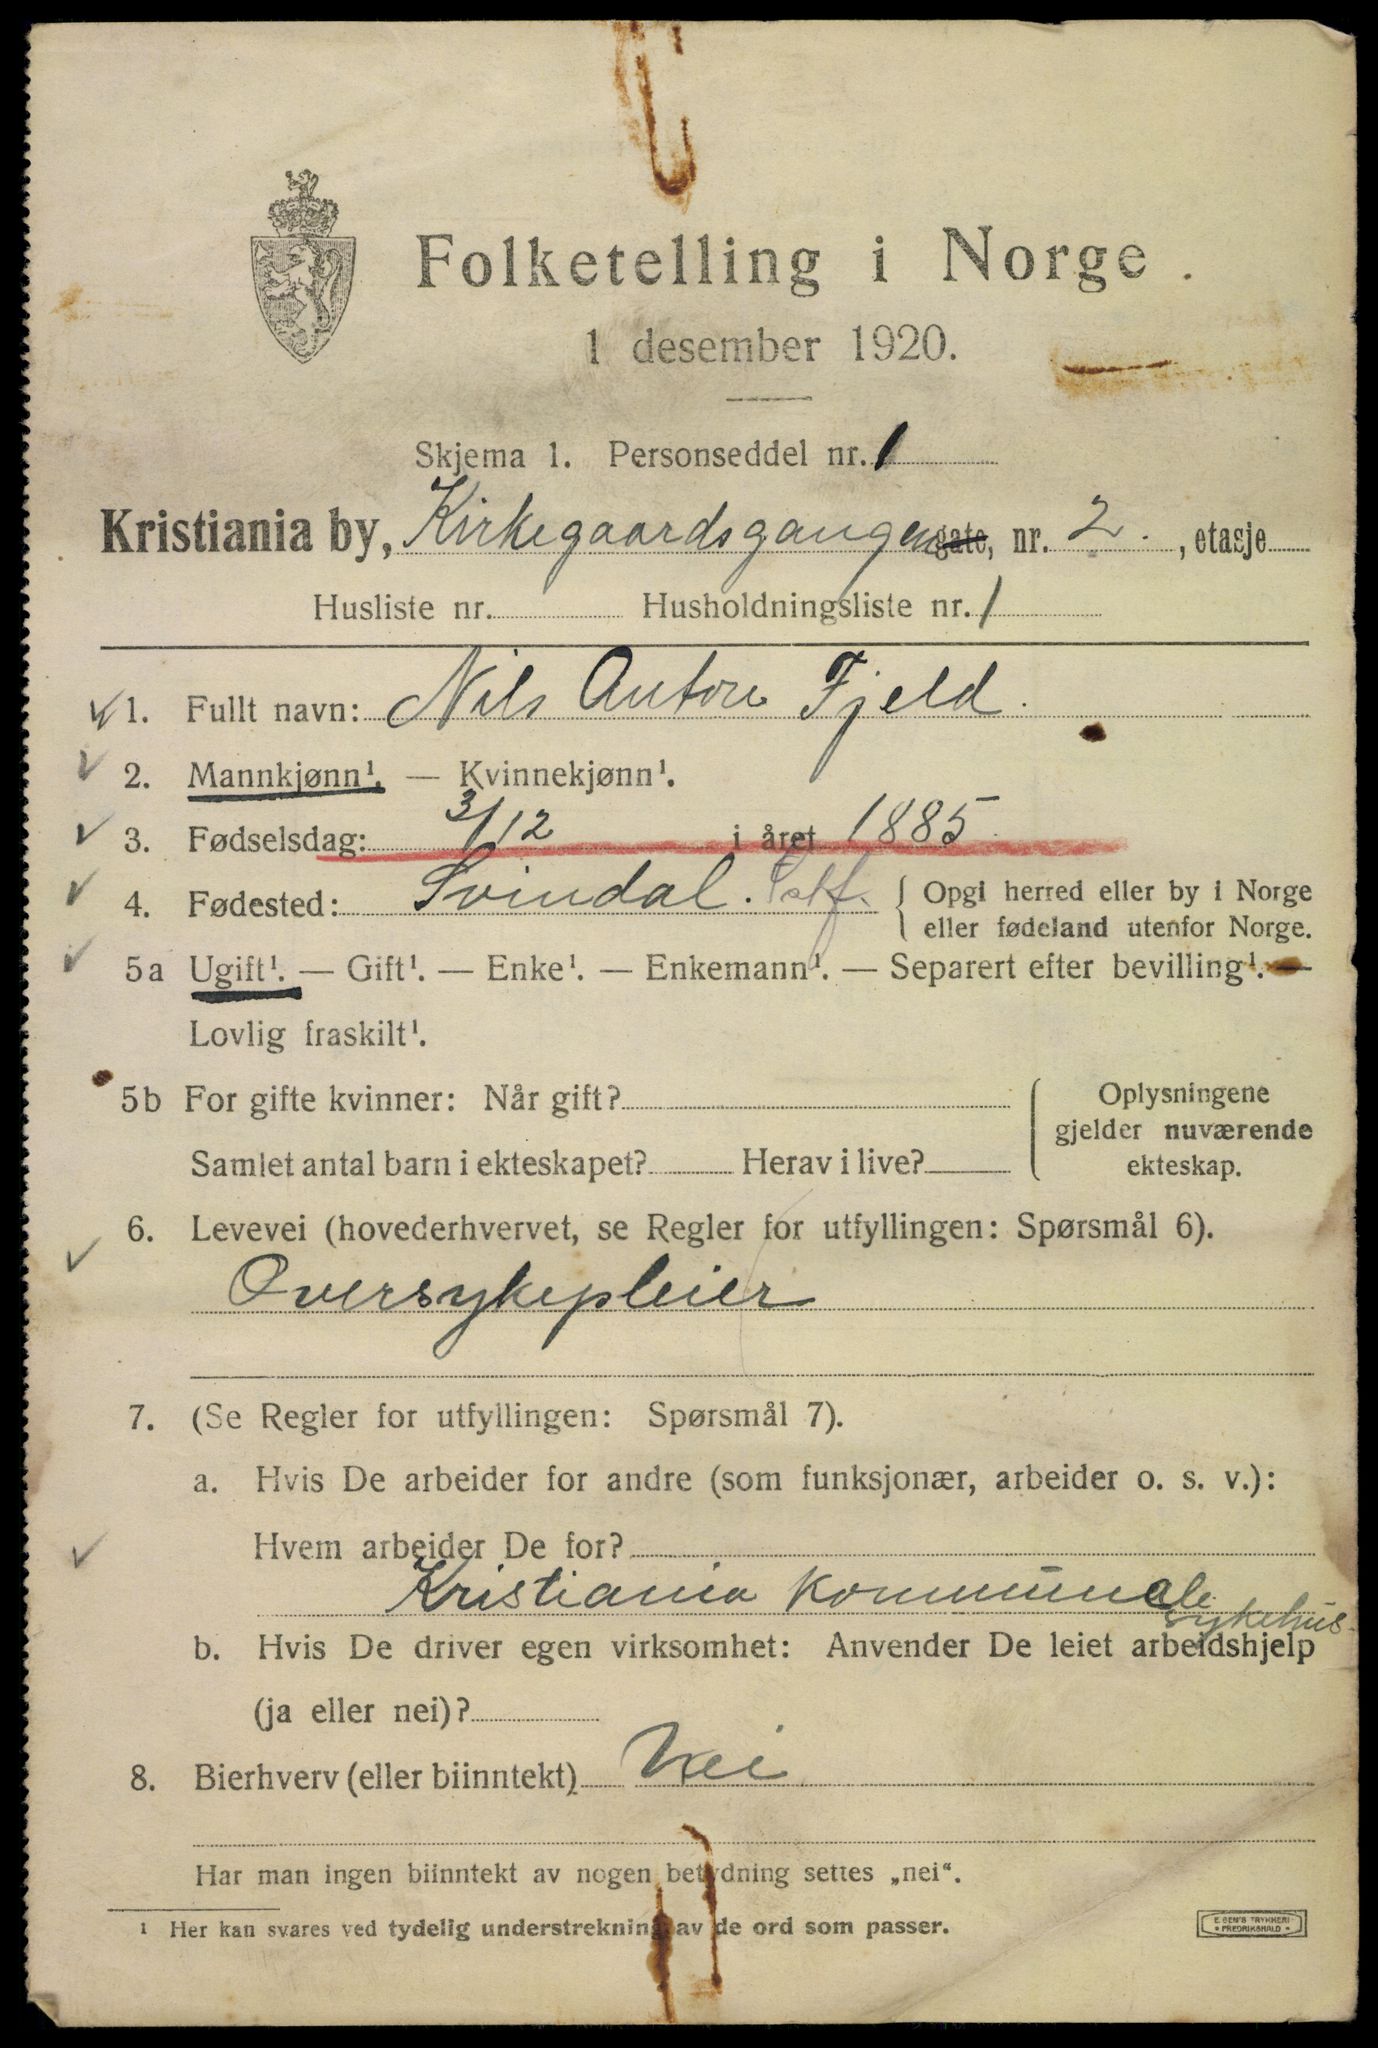 Folketelling i Norge
1 desember 1920.
Skjema 1. Personseddel nr. 1
Kristiania by, Kirkegaardsgangen gate, nr. 2. , etasje
Husliste nr. Husholdningsliste nr. 1
1. Fullt navn: Nils Anton Fjeld.
2. Mannkjønn¹. — Kvinnekjønn¹.
3. Fødselsdag: 3/12 i året 1885
4. Fødested: Svindal. Østf. { Opgi herred eller by i Norge
eller fødeland utenfor Norge.
5a Ugift¹. — Gift¹. — Enke¹. — Enkemann¹. — Separert efter bevilling¹. —
Lovlig fraskilt¹.
5b For gifte kvinner: Når gift? { Oplysningene
gjelder nuværende
Samlet antal barn i ekteskapet? Herav i live? ekteskap.
6. Levevei (hovederhvervet, se Regler for utfyllingen: Spørsmål 6).
Oversykepleier
7. (Se Regler for utfyllingen: Spørsmål 7).
a. Hvis De arbeider for andre (som funksjonær, arbeider o. s. v.):
Hvem arbeider De for?
Kristiania kommunale
sykehus.
b. Hvis De driver egen virksomhet: Anvender De leiet arbeidshjelp
(ja eller nei)?
8. Bierhverv (eller biinntekt) Nei
Har man ingen biinntekt av nogen betydning settes „nei“.
¹ Her kan svares ved tydelig understrekning av de ord som passer.
E. SEM'S TRYKKERI
FREDRIKSHALD